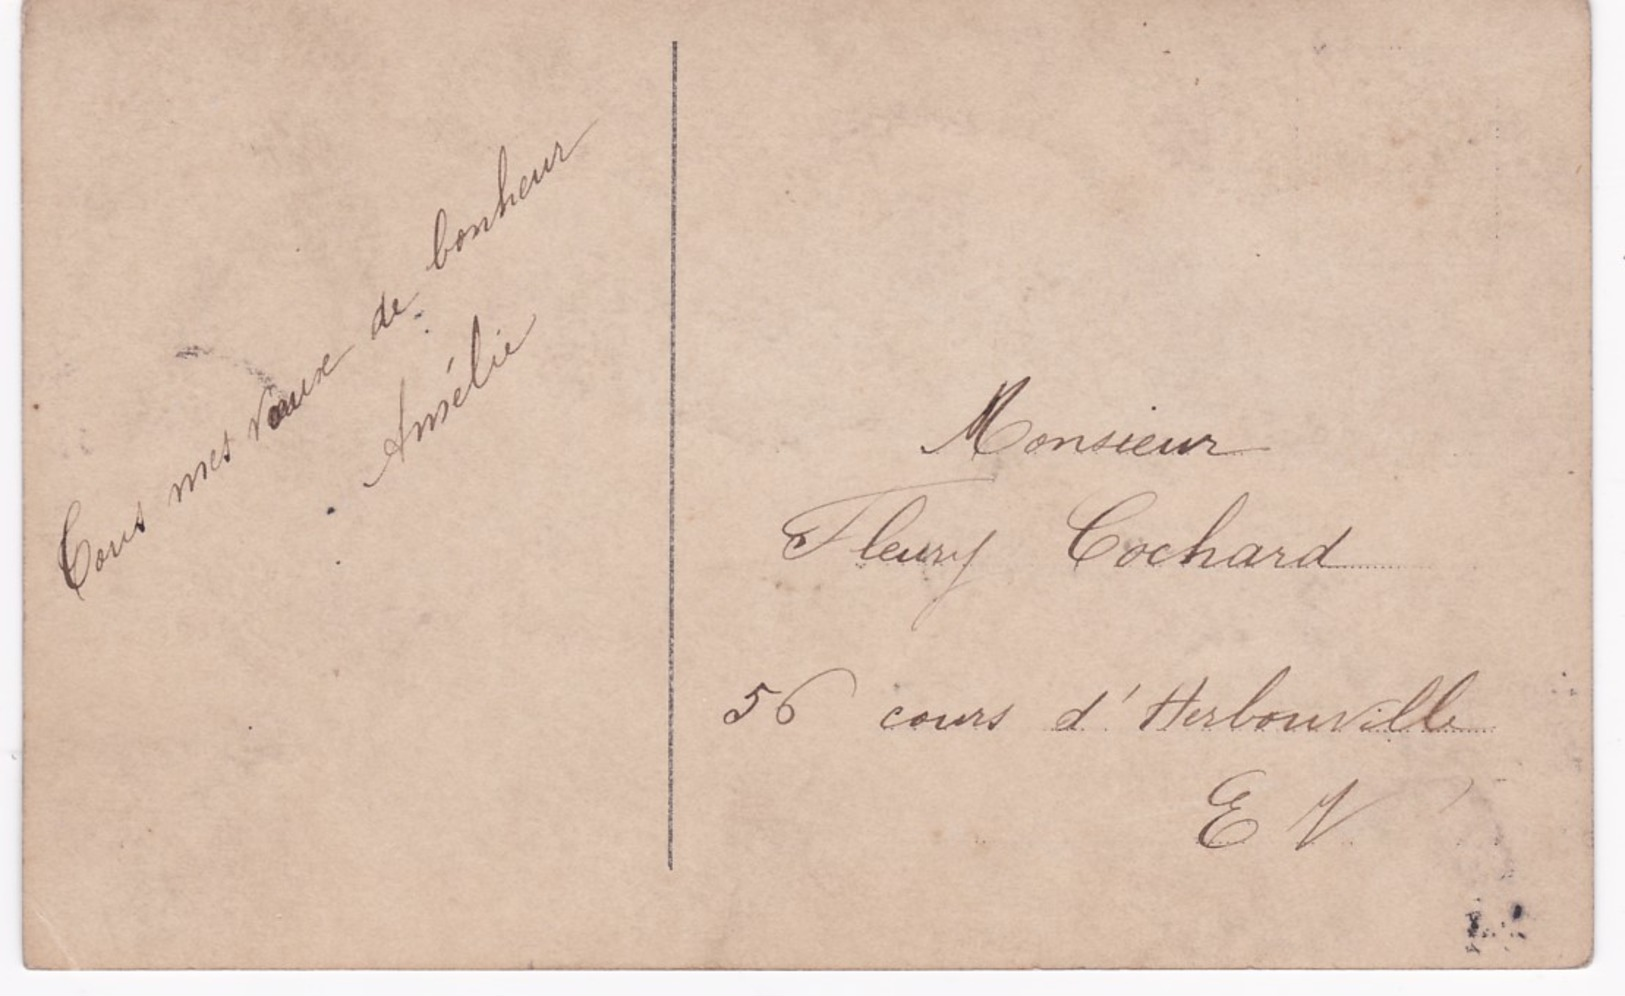 Tous mes vœux de bonheur
Amélie
Monsieur
Fleury Cochard
56 cours d'Herbouville
E V